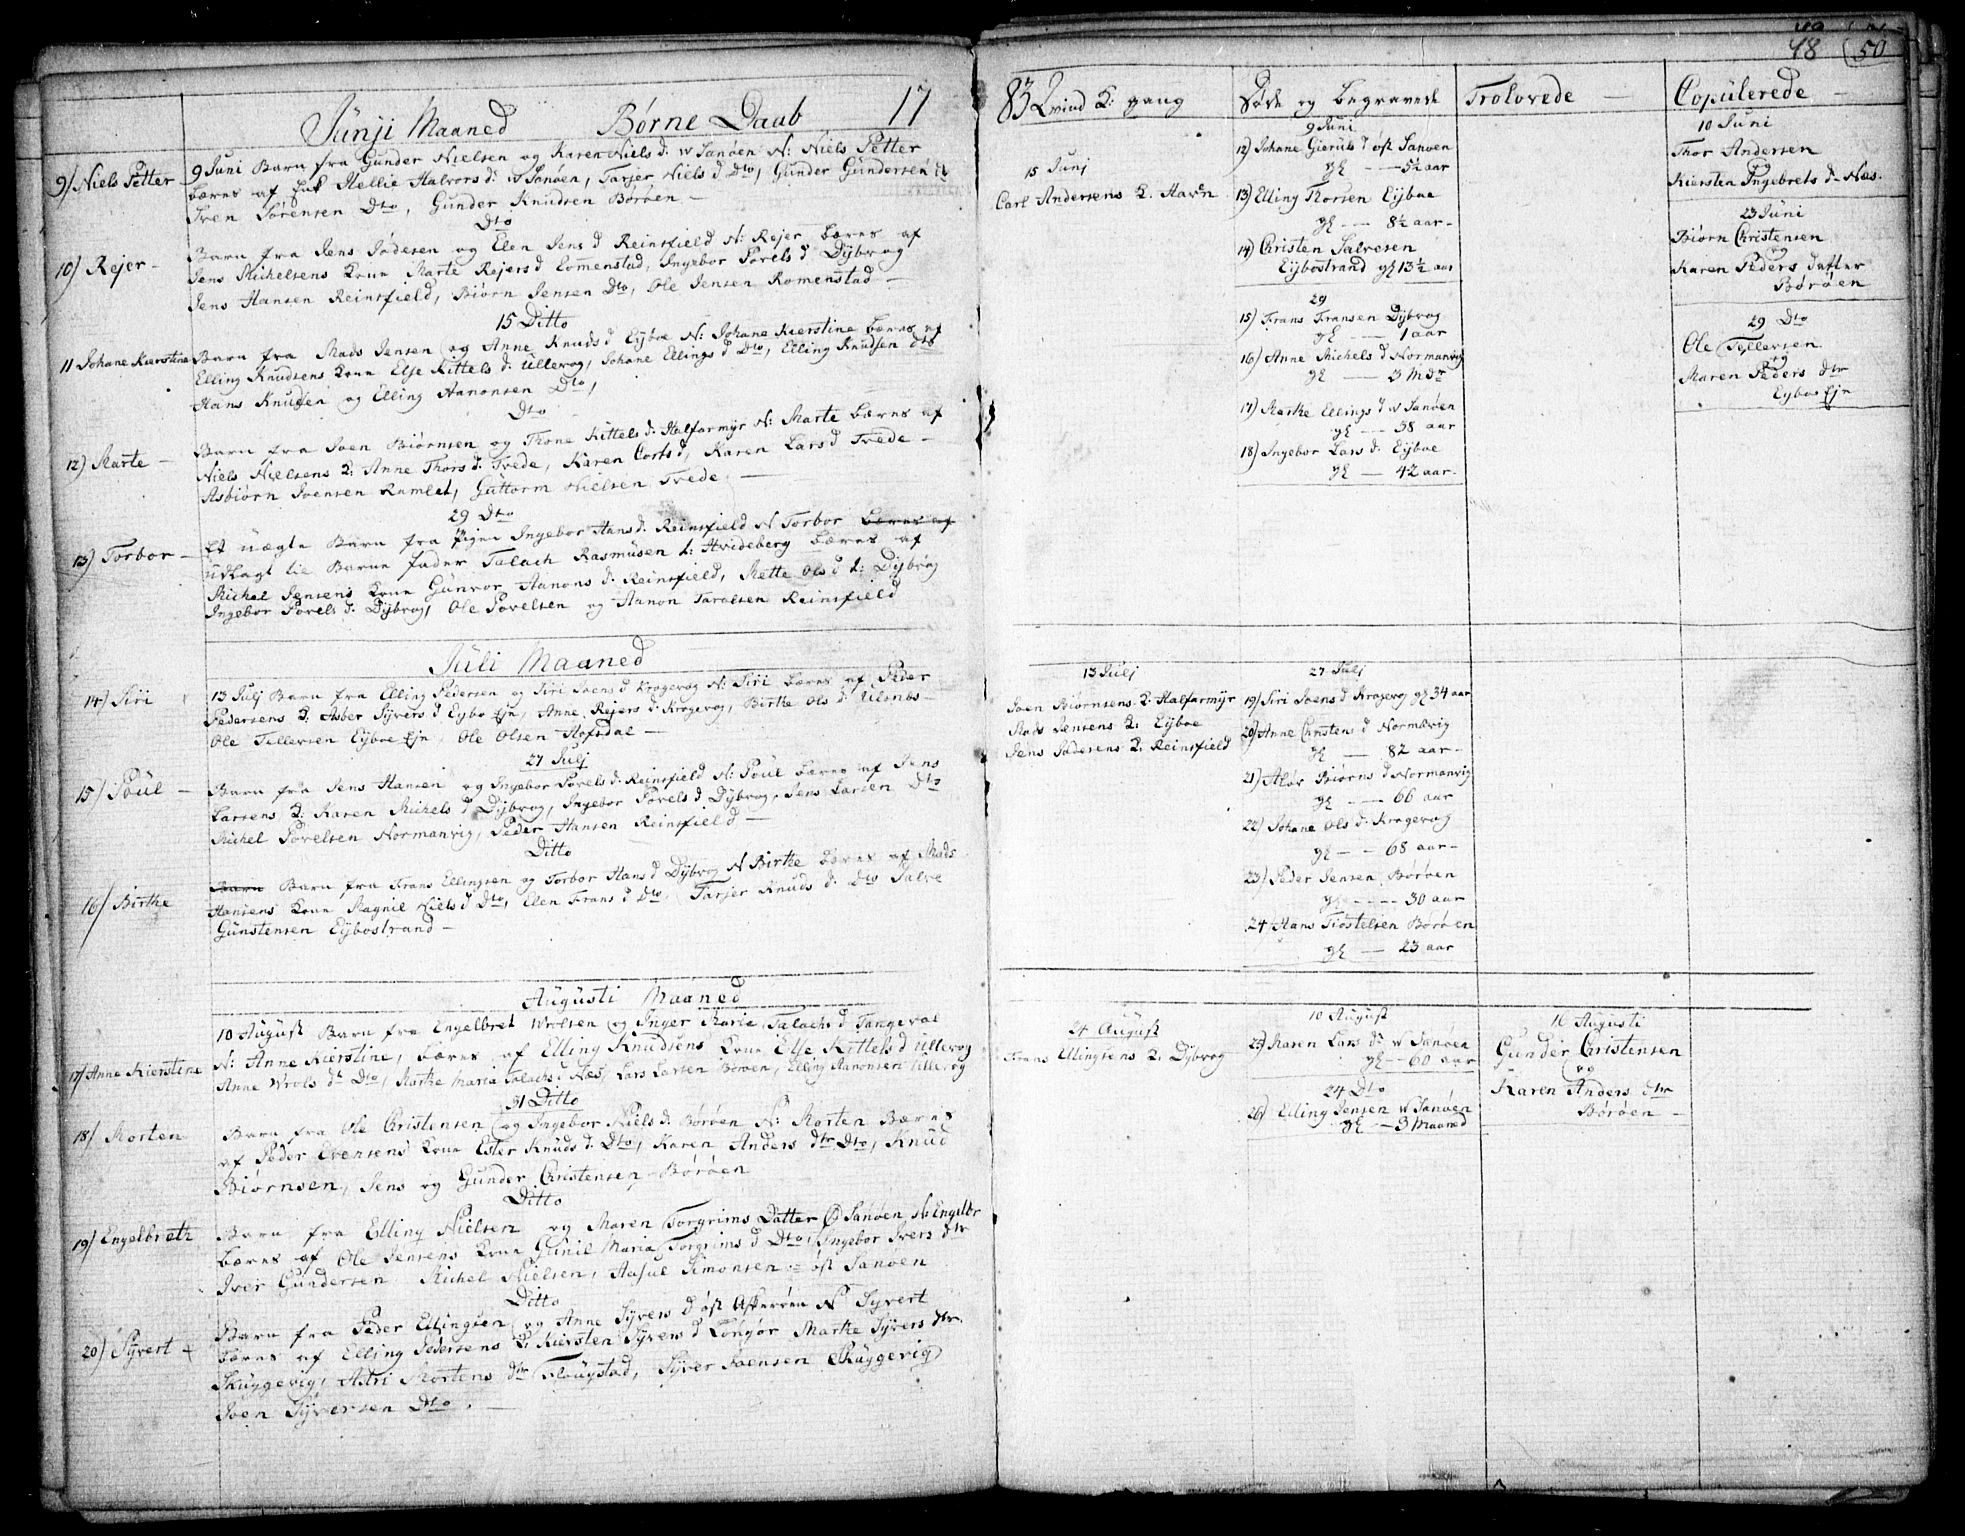 Junji Maaned Børne Daab 17
9) Niels Petter
9 Juni Barn fra Gunder Nielsen og Karen Niels d: W Sanøen N: Niels Petter
bæres af Hellie Halvors d: W Sanøen, Tarjer Niels d Dto, Gunder Gundersen
Sven Sørensen Dto, Gunder Knudsen Børøen
Dto
10) Rejer
Barn fra Jens og Elen Jens d Reinsfield N: Rejer bæres af
Jens Michelsens Kone Marte Rejers d Romenstad, Ingebor Povels d Dybvog
Jens Hansen Reinsfield, Biørn Jensen Dto, Ole Jensen Romenstad
15 Ditto
11 Johane Kierstine
Barn fra Mads Jensen og Anne Knuds d Eyboe N: Johane Kierstine bæres af
Elling Knudsens Kone Else Kittels d: Ullevog, Johane Ellings d Dto, Elling Knudsen Dto
Hans Knudsen og Elling Aanonsen Dto,
Dto
12) Marte
Barn fra Soen Biørnsen og Thone Kittels d: Halfarmyr N: Marte bæres af
Niels Nielsens K: Anne Thors d: Tvede, Karen Corts d, Karen Lars d Tvede
Asbiørn Soensen Ramlet, Guttorm Nielsen Tvede
29 Dto
13) Torbor
Et uægte Barn fra Pigen Ingebor Hans d: Reinsfield N Torbor bæres af
udlagt til Barne fader Talach Rasmusen Hvideberg bæres af
Michel Jensens Kone Gunvor Aanons d: Reinsfield, Mette Ols d Dybvog
Ingebor Povels d: Dybvog, Ole Povelsen og Aanon Taralsen Reinsfield
Juli Maaned
14) Siri
13 Julj Barn fra Elling Pedersen og Siri Soens d Krogevog N: Siri bæres af Peder
Pedersens K: Asber Syvers d Eybo Ejn, Anne Rejers d: Krogevog, Birthe Ols d Ulsnes
Ole Tellevsen Eyboe Ejn, Ole Olsen Hofsdal
27 Julj
15) Poul
Barn fra Jens Hansen og Ingebor Povels d: Reinsfield N: Poul bæres af Jens
Larsens K: Karen Michels d Dybvog, Ingebor Povels d Dybvog, Jens Larsen Dto
Michel Povelsen Normanvig, Peder Hansen Reinsfield
Ditto
16) Birthe
Barn Barn fra Frans Ellingsen og Torbor Hans d Dybvog N Birthe bæres af Mads
Hansens Kone Magnil Niels d Dto, Elen Frans d Dto, Tarjer Knuds d: Dto Salve
Gunstensen Eybostrand
Augusti Maaned
17) Anne Kierstine
10 August Barn fra Engelbret Wrolsen og Inger Maria Talachs d Tangeval
N: Anne Kierstine, bæres af Elling Knudsens Kone Else Kittels d Ullevog
Anne Wrols dr Dto, Marthe Maria Talachs d Næs, Lars Larsen Børøen, Elling Aanonsen Ullevog
31 Ditto
18) Morten
Barn fra Ole Christensen og Ingebor Niels d: Børøen N: Morten Bæres
af Peder Evensens Kone Ester Knuds d: Dto, Karen Anders dtr Dto, Knud
Biørnsen, Jens og Gunder Christensen Børøen
Ditto
19) Engelbreth
Barn fra Elling Nielsen og Maren Torgrims Datter Ø Sanøen N: Engelbr
bæres af Ole Jensens Kone Gunil Maria Torgrims d Dto, Ingebor Ivers dtr
Iver Gundersen Michel Nielsen, Aasul Simonsen øst Sanøen
Ditto
20) Syvert
Barn fra Peder Ellingsen og Anne Syvers d øst Askerøen N Syvert
bæres af Elling Pedersens K: Kiersten Syvers d Longøe Marthe Syvers dtr.
Skuggevig, Astri Mortens dtr Flougstad, Syver Soensen Skuggevig
Soen Syversen Dto.
48 50
83 Qvind K: gang
15 Junj
Carl Andersens K. Havn
13 Julj
Soen Biørnsens K: Halfarmyr
Mads Jensens K: Eyboe
Jens K: Reinsfield
24 August
Frans Ellingsens K. Dybvog
Døde og begravede
9 Juni
12) Johane d øst Sanøen
gl — 5½ aar
13) Elling Thorsen Eyboe
gl — 8½ aar
14) Christen Salvesen
Eybostrand gl 13½ aar
29
15) Frans Fransen Dybvog
gl — 1 aar
16) Anne Michels d Normanvig
gl — 3 Mdr
17) Marthe Ellings d W Sanøen
gl — 38 aar
18) Ingebor Lars d: Eyboe
gl — 42 aar
27 Julj
19) Siri Soens d Krogevog gl 34 aar
20) Anne Christens d Normanvig
gl — 82 aar
21) Aløv Biørns d Normanvig
gl — 66 aar
22) Johane Ols d. Krogevog
gl — 68 aar
23) Peder Jensen Børøen
gl — 30 aar
24 Hans Tiostelsen Børøen
gl — 23 aar
10 August
25) Karen Lars dr W Sanøen
gl — 60 aar
24 Dto
26) Elling Jensen W Sanøen
gl — 3 Maaned
Trolovede
16 Augusti
Gunder Christensen
og
Karen Anders dtr
Børøen
Copulerede
10 Juni
Thor Andersen
og
Kiersten Ingebrets d Næs.
23 Juni
Biørn Christensen
og
Karen Peders datter
Børøen
29 Dto
Ole Tellevsen
og
Maren Peders dtr
Eyboe Ejn